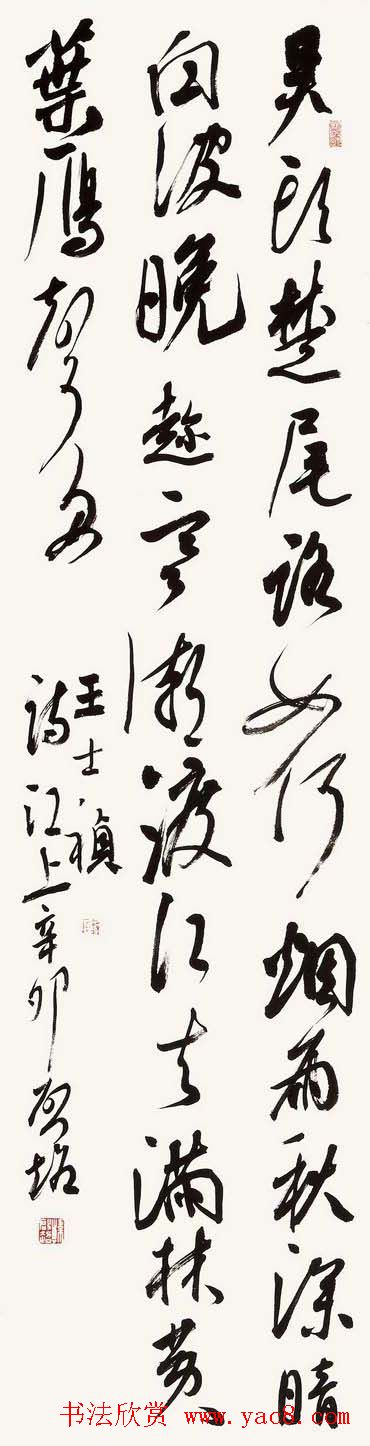 吴頭楚尾路如何烟雨秋深暗
白波晚趁寒潮渡江去满林黄
葉雁聲多
王士禎
詩江上辛卯
书法欣赏 www.yac8.com